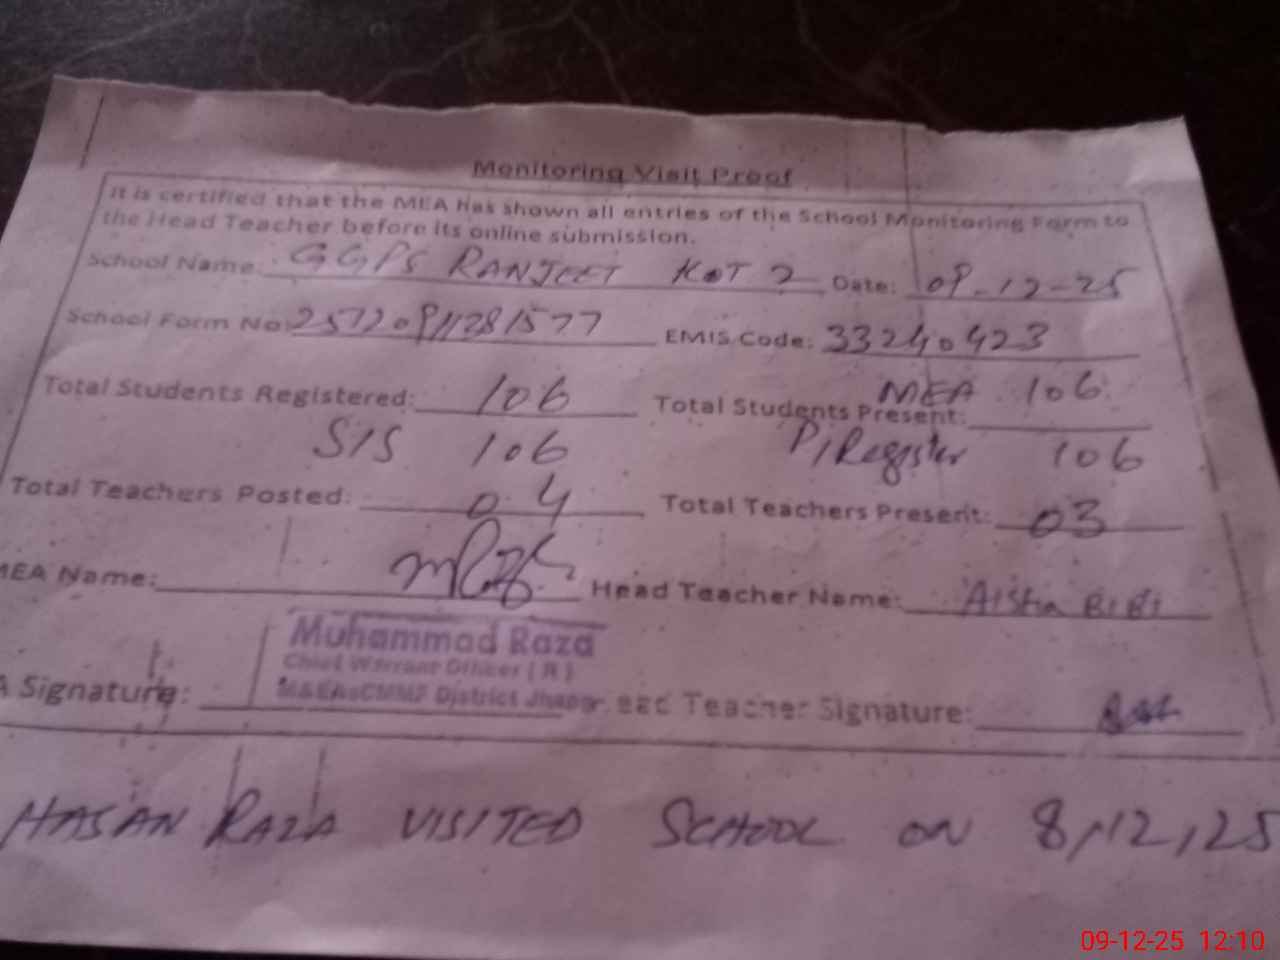 Monitoring Visit Proof
It is certified that the MEA has shown all entries of the School Monitoring Form to
the Head Teacher before its online submission.
School Name: GGPS RANJEET KOT 2 Date: 09-12-25
School Form No: 25720911281577 EMIS Code: 33240423
Total Students Registered: 106 Total Students Present: MEA 106
SIS 106 P/Register 106
Total Teachers Posted: 04 Total Teachers Present: 03
MEA Name: Head Teacher Name: Aisha BiBi
Muhammad Raza
Chief Warrant Officer (R)
A Signature: District Jhang ead Teacher Signature:
HASAN RAZA VISITED SCHOOL ON 8,12,25
09-12-25 12:10